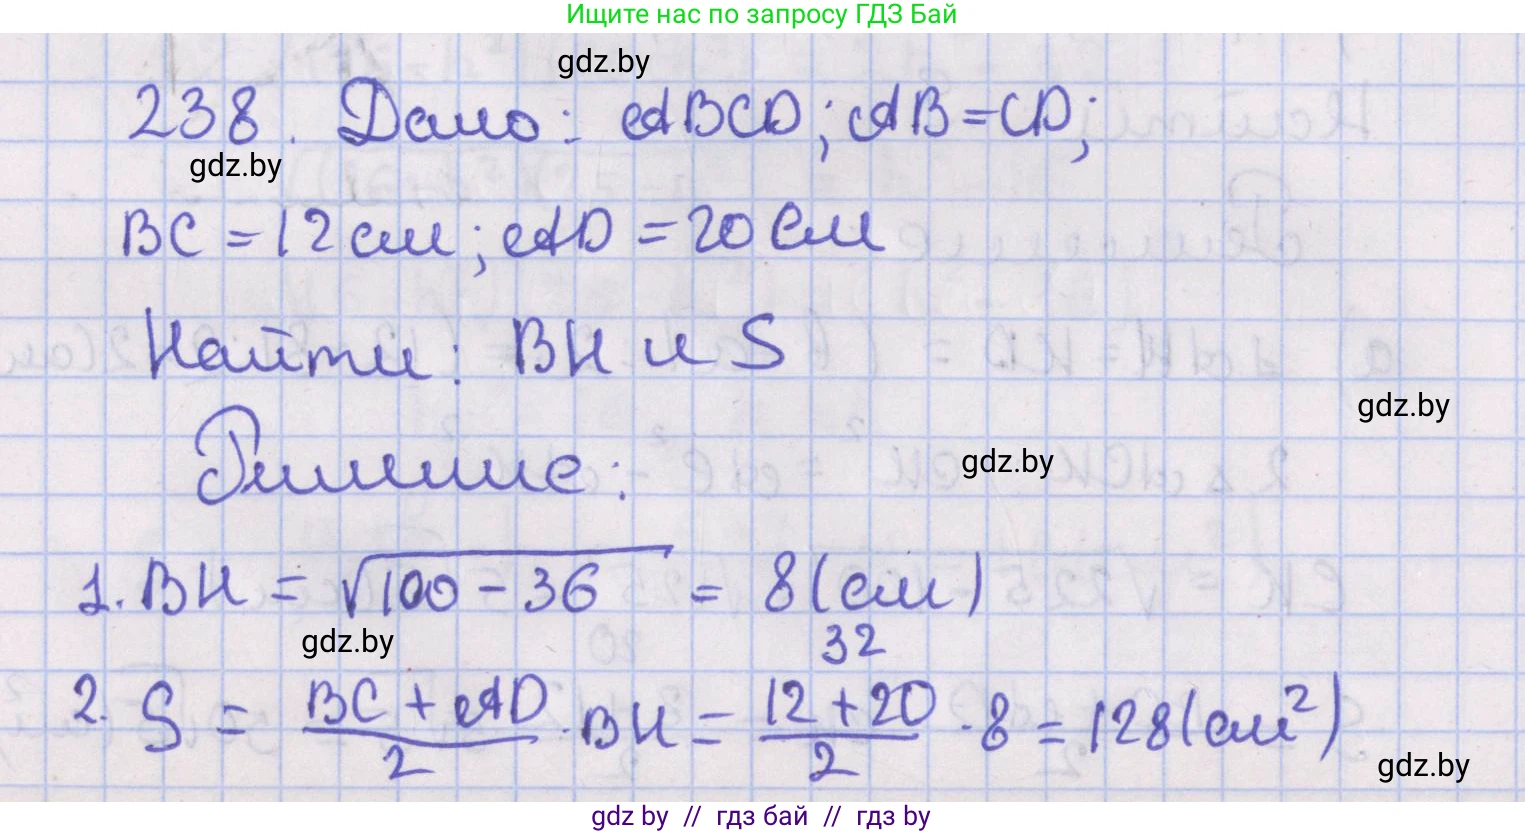 Ищите нас по запросу ГДЗ Бай
gdz.by
238. Дано: ABCD; AB=CD;
gdz.by
BC = 12 см; AD = 20 см
Найти: BH и S
gdz.by
Решение:
gdz.by
1. BH = √100 - 36 = 8 (см)
gdz.by
32
2. S = BC + AD / 2 · BH = 12 + 20 / 2 · 8 = 128 (см²)
gdz.by
gdz by // гдз бай // гдз by